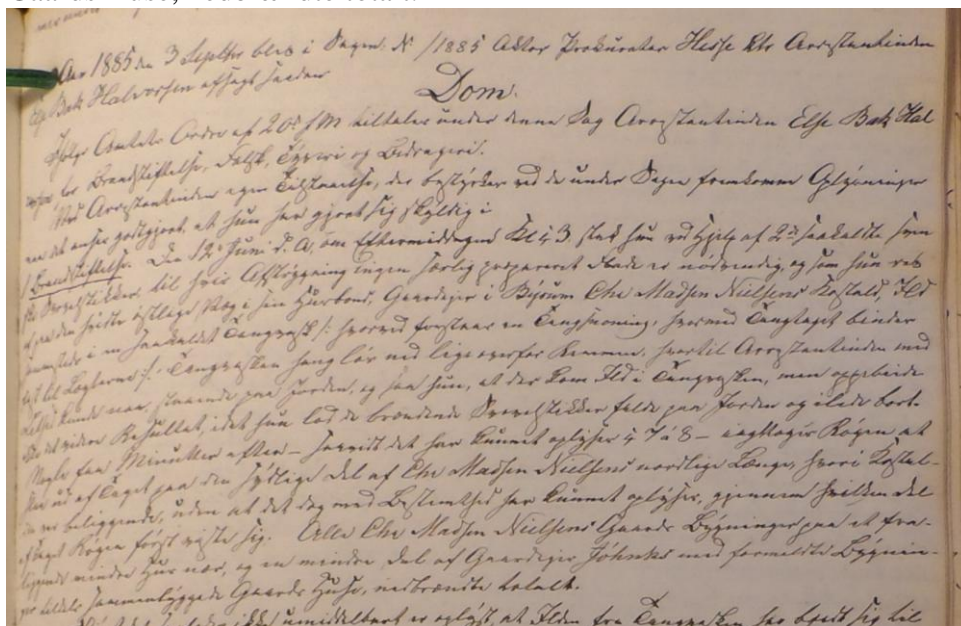 Aar 1885 den 3 Septbr blev i Sagen № /1885 Aktor Prokurator Hesse ktr Arrestantinden
Else Bak Halvorsen afsagt saadan
Dom.
Ifølge Amtets Ordre af 20de f M tiltales under denne Sag Arrestantinden Else Bak Hal
vorsen for Brandstiftelse, Falsk, Tyveri og Bedrageri.
Ved Arrestantindens egen Tilstaaelse, der bestyrkes ved de under Sagen fremkomne Oplysninger
maa det anses godtgjort, at hun har gjort sig skyldig i
1 Brandstiftelse. Den 12te Juni d. A, om Eftermiddagen Kl. c. 3, stak hun ved Hjælp af 2de saakaldte
Svovlstikker, til hvis Afstrygning ingen særlig præpareret Flade er nødvendig, og som hun rev
af paa den hvidte østlige Væg i sin Husbonds, Gaardejer i Byrum Chr Madsen Nielsens Kostald, Ild
i en saakaldt Tangvask /: hvorved forstaaes en Tangsnoning, hvormed Tangtaget bindes
fast til Lægterne :/. Tangvasken hang løs ned lige overfor, hvortil Arrestantinden med
kunde naa, staaende paa Jorden, og saa hun, at der kom Ild i Tangvasken, men oppebiede
ikke det videre Resultat, idet hun lod de brændende Svovlstikker falde paa Jorden og ilede bort.
Nogle faa Minutter efter – saavidt det har kunnet oplyses c 7 à 8 – iagttoges Røgen at
slaa ud af Taget paa den sydlige Del af Chr Madsen Nielsens nordlige Længe, hvori Kostal-
den var beliggende, uden at det dog med Bestemthed har kunnet oplyses, gjennem hvilken Del
af Taget Røgen først viste sig. Alle Chr Madsen Nielsens Gaards Bygninger paa et fra-
liggende mindre Hus nær, og en mindre Del af Gaardejer Johnks med formeldte Bygnin-
ger tildels sammenbyggede Gaards Huse, nedbrændte totalt.
ikke umiddelbart er oplyst, at Ilden fra Tangvasken har bredt sig til